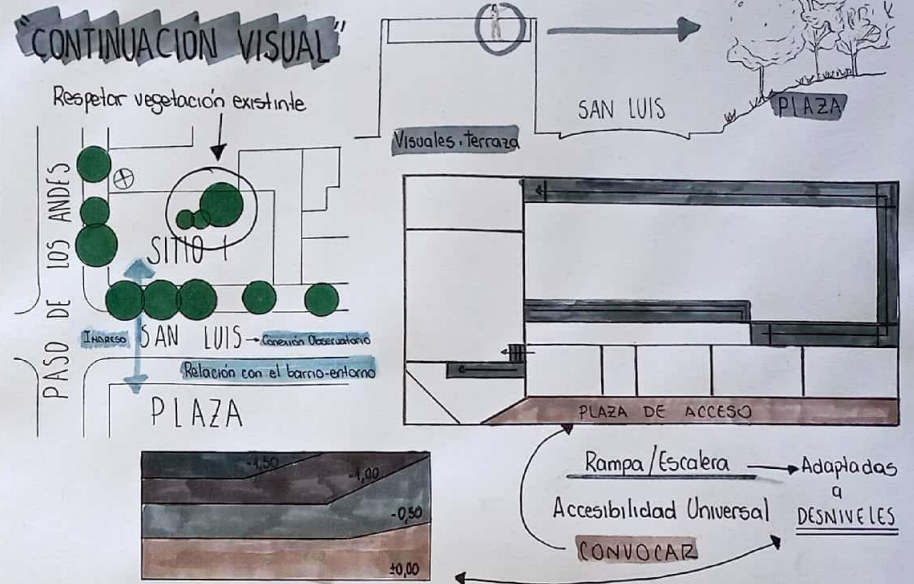 "CONTINUACIÓN VISUAL"
Respetar vegetación existinte
PASO DE LOS ANDES
SITIO 1
INGRESO
SAN LUIS → Conexión Observatorio
Relación con el barrio-entorno
PLAZA
Visuales. terraza
SAN LUIS
PLAZA
PLAZA DE ACCESO
-1,50
-1,00
-0,50
±0,00
Rampa/Escalera → Adaptadas
a
DESNIVELES
Accesibilidad Universal
CONVOCAR